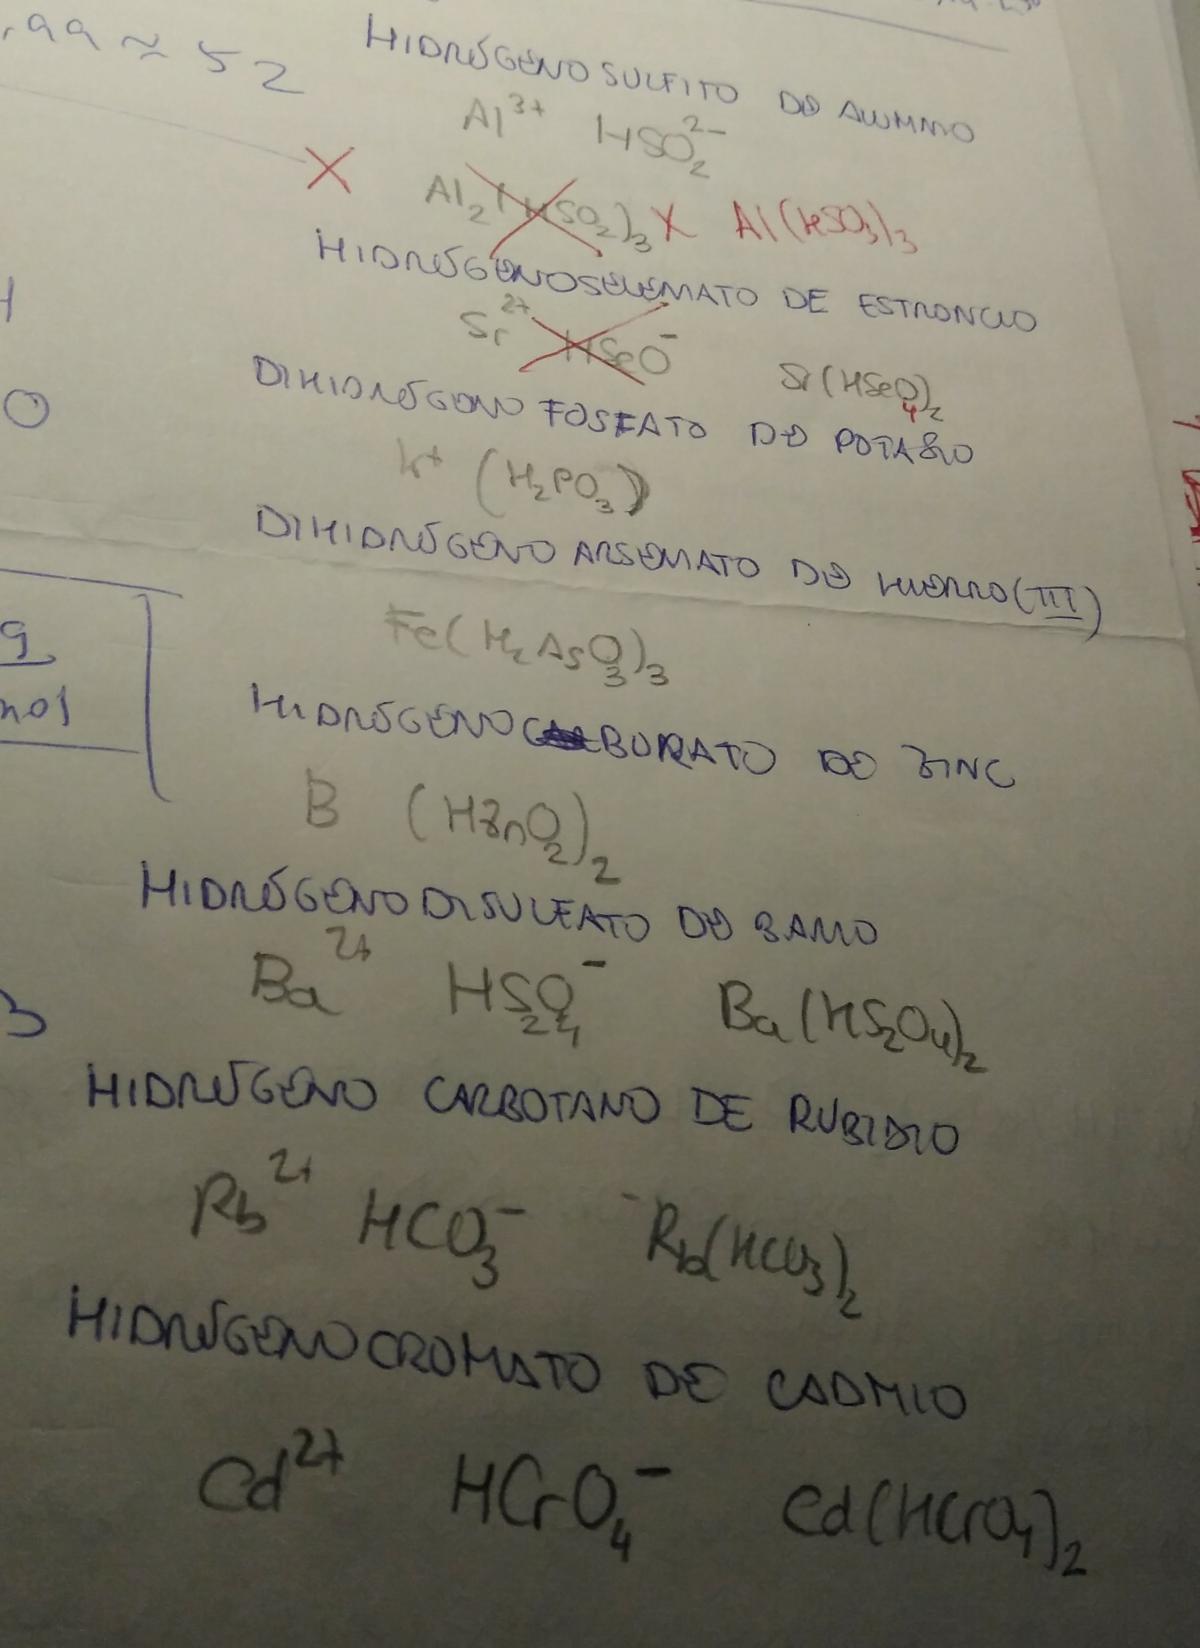 ,99 ≈ 52
HIDRÓGENOSULFITO DE ALUMINIO
Al³⁺ HSO₂²⁻
X Al₂(HSO₂)₃ X Al(HSO₃)₃
HIDRÓGENOSELENATO DE ESTRONCIO
Sr²⁺ HSeO⁻ Sr(HSeO₄)₂
DIHIDRÓGENO FOSFATO DE POTASIO
O
K⁺ (H₂PO₃)
DIHIDRÓGENO ARSENIATO DE HIERRO (III)
Fe(H₂AsO₃)₃
g
mol
HIDRÓGENO BORATO DE ZINC
B (HZnO₂)₂
HIDRÓGENODISULFATO DE BARIO
Ba²⁺ HS₂O₄⁻ Ba(HS₂O₄)₂
3
HIDRÓGENO CARBOTANO DE RUBIDIO
Rb²⁺ HCO₃⁻ Rb(HCO₃)₂
HIDRÓGENOCROMATO DE CADMIO
Cd²⁺ HCrO₄⁻ Cd(HCrO₄)₂